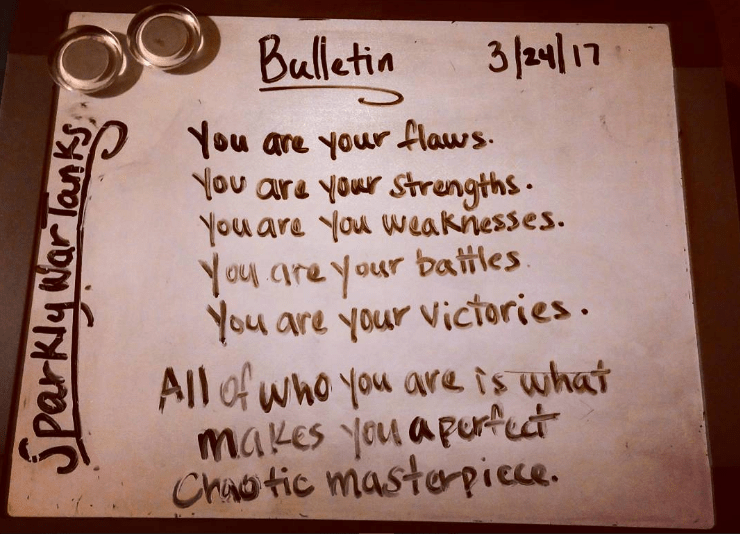 Bulletin 3/24/17
Sparkly War Tanks
You are your flaws.
You are your strengths.
You are you weaknesses.
You are your battles.
You are your victories.
All of who you are is what
makes you a perfect
Chaotic masterpiece.